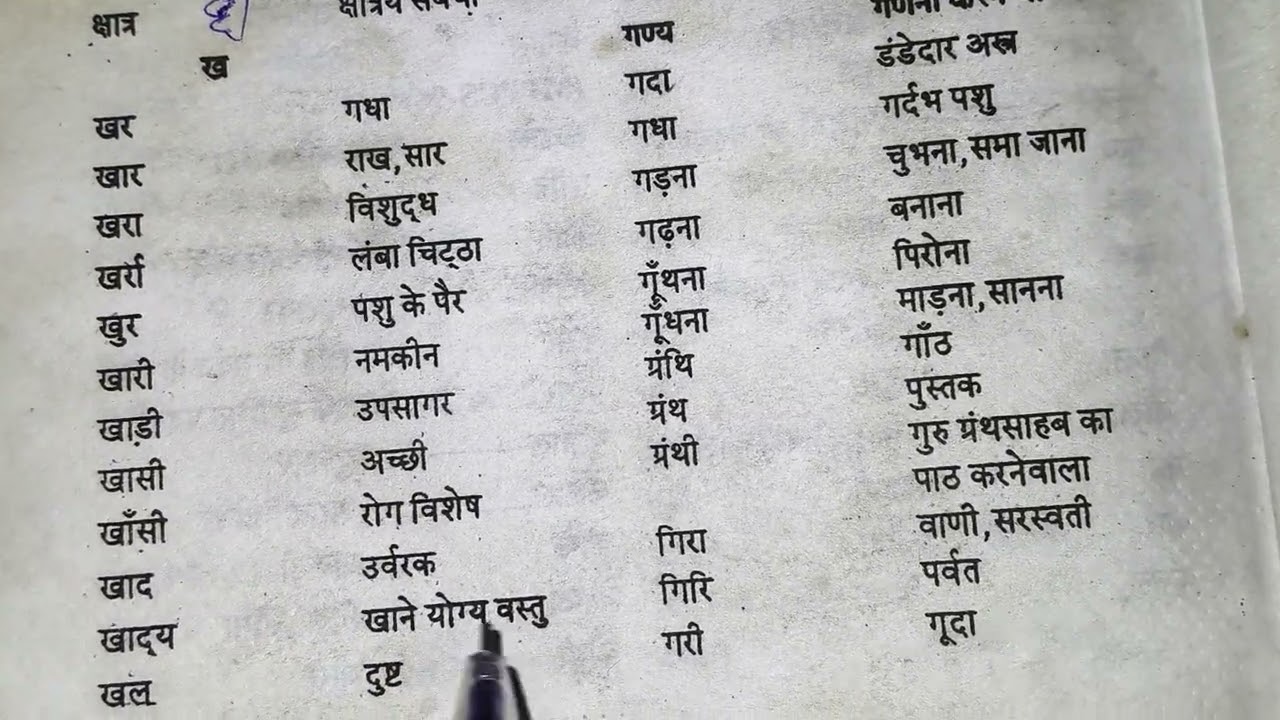 क्षात्र
ख
खर गधा
खार राख,सार
खरा विशुद्ध
खर्रा लंबा चिट्ठा
खुर पशु के पैर
खारी नमकीन
खाड़ी उपसागर
खासी अच्छी
खाँसी रोग विशेष
खाद उर्वरक
खाद्य खाने योग्य वस्तु
खल दुष्ट
गण्य
गदा डंडेदार अस्त्र
गधा गर्दभ पशु
गड़ना चुभना,समा जाना
गढ़ना बनाना
गूँथना पिरोना
गूँधना माड़ना,सानना
ग्रंथि गाँठ
ग्रंथ पुस्तक
ग्रंथी गुरु ग्रंथसाहब का
पाठ करनेवाला
गिरा वाणी,सरस्वती
गिरि पर्वत
गरी गूदा